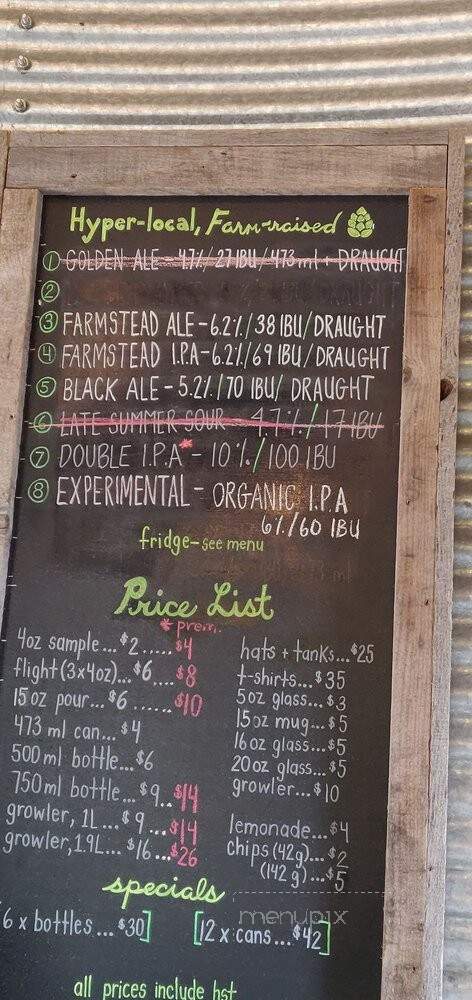 Hyper-local, Farm-raised
① GOLDEN ALE - 4.7%/27 IBU/473 ml + DRAUGHT
②
③ FARMSTEAD ALE - 6.2%/38 IBU/DRAUGHT
④ FARMSTEAD I.P.A - 6.2%/69 IBU/DRAUGHT
⑤ BLACK ALE - 5.2%/70 IBU/ DRAUGHT
⑥ LATE SUMMER SOUR - 4.7%/17 IBU
⑦ DOUBLE I.P.A* - 10%/100 IBU
⑧ EXPERIMENTAL - ORGANIC I.P.A
6%/60 IBU
fridge - see menu
Price List
* prem.
4oz sample...$2.....$4
flight (3x4oz)...$6....$8
15oz pour...$6......$10
473 ml can...$4
500ml bottle...$6
750ml bottle...$9..$14
growler, 1L...$9...$14
growler, 1.9L...$16...$26
hats + tanks...$25
t-shirts...$35
5oz glass...$3
15oz mug...$5
16oz glass...$5
20oz glass...$5
growler...$10
lemonade...$4
chips (42g)...$2
(142g)...$5
specials
6 x bottles...$30]
[12 x cans...$42]
menupix
all prices include hst